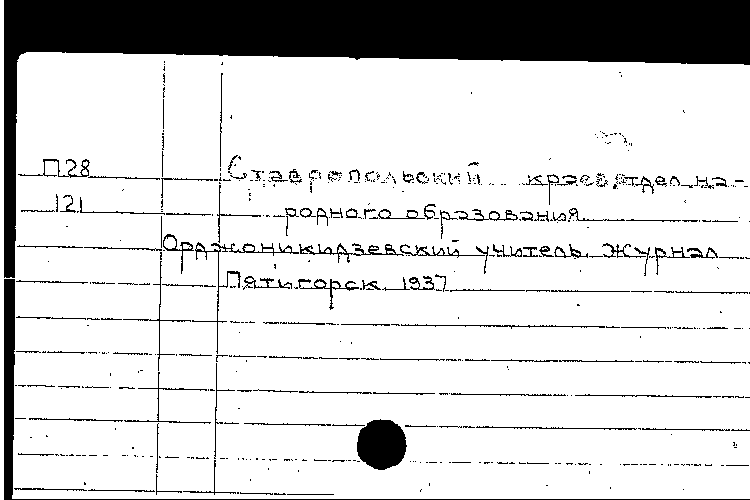 П28 Ставропольский краев. отдел на-
121 родного образования
Орджоникидзевский учитель. Журнал
Пятигорск. 1937